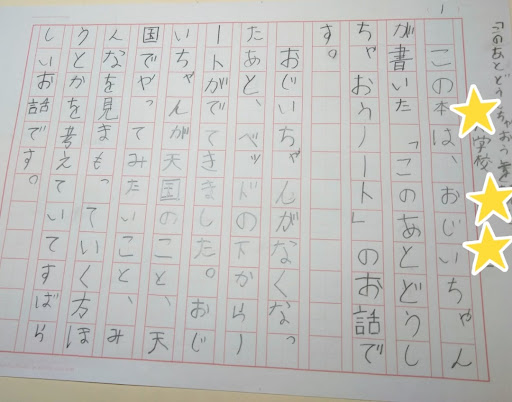 「このあとどうしちゃおう
学校
この本は、おじいちゃん
が書いた「このあとどうし
ちゃおうノート」のお話で
す。
おじいちゃんがなくなっ
たあと、ベッドの下からノ
ートがでてきました。おじ
いちゃんが天国のこと、天
国でやってみたいこと、み
んなを見まもっていく方ほ
うとかを考えていてすばら
しいお話です。